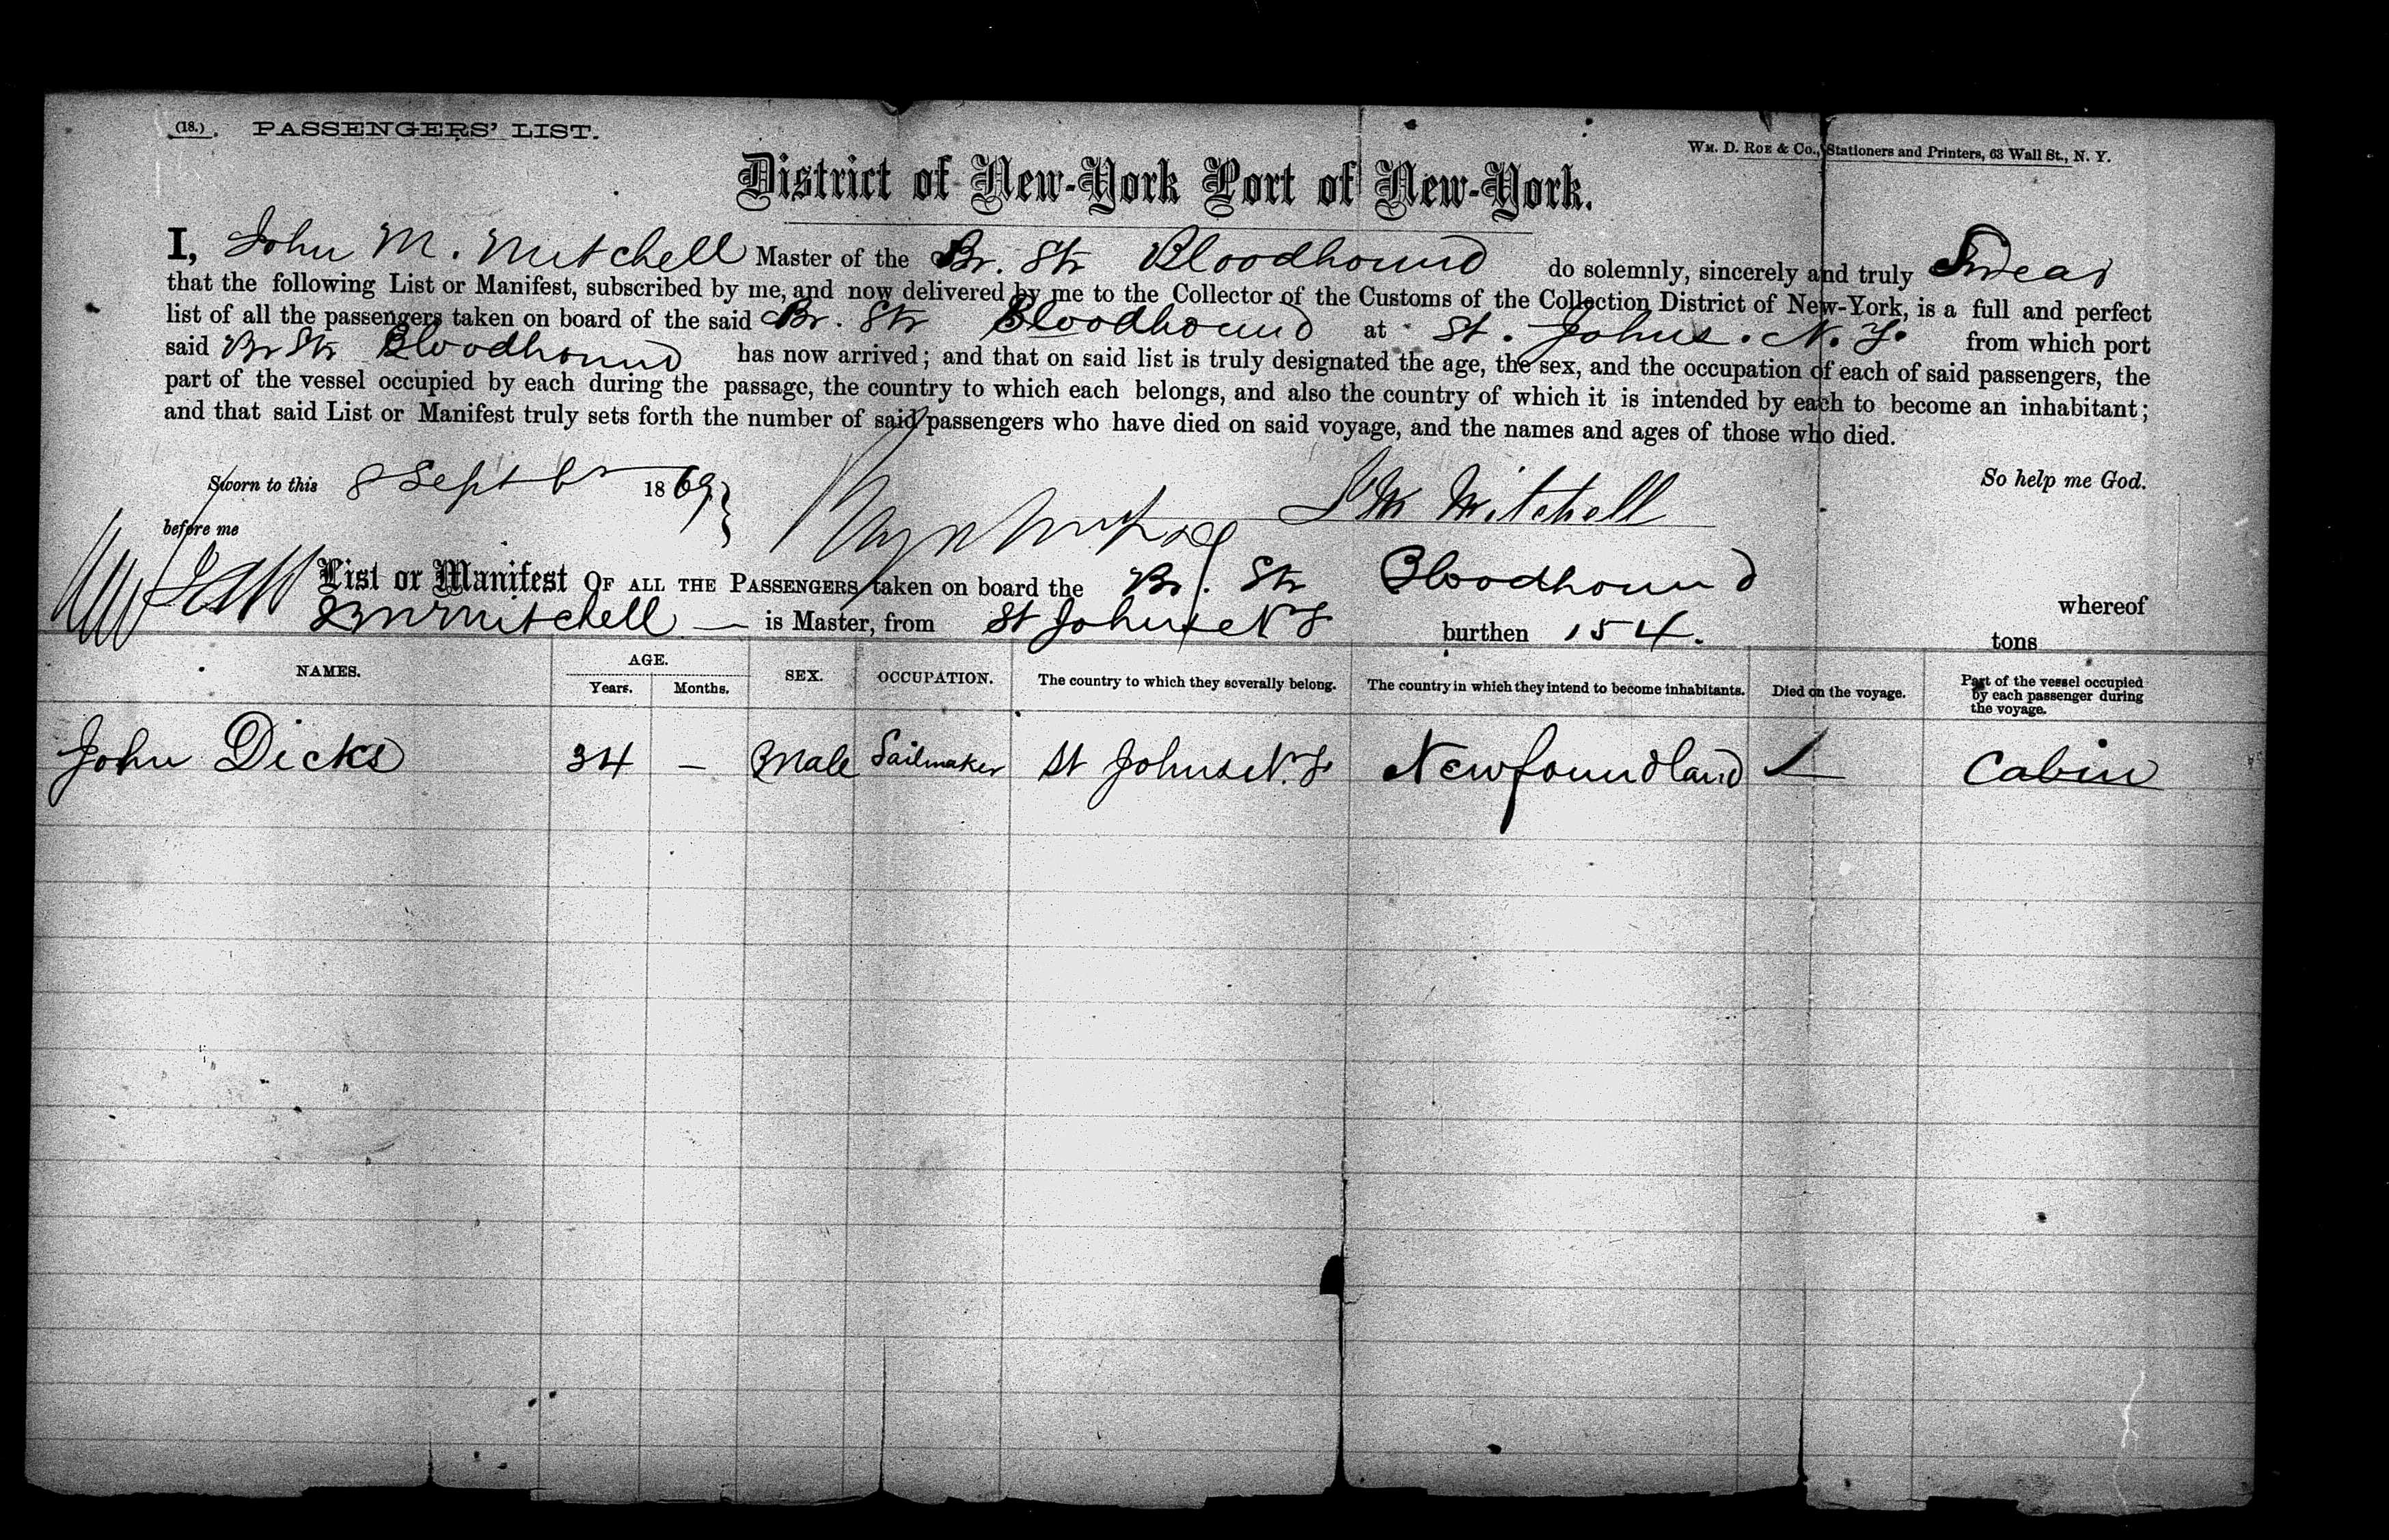 (18.) PASSENGERS' LIST.
Wm. D. Roe & Co., Stationers and Printers, 63 Wall St., N. Y.
District of New-York Port of New-York.
I, John M. Mitchell Master of the Br. Str Bloodhound do solemnly, sincerely and truly Swear
that the following List or Manifest, subscribed by me, and now delivered by me to the Collector of the Customs of the Collection District of New-York, is a full and perfect
list of all the passengers taken on board of the said Br. Str Bloodhound at St. Johns. N. F. from which port
said Br Str Bloodhound has now arrived; and that on said list is truly designated the age, the sex, and the occupation of each of said passengers, the
part of the vessel occupied by each during the passage, the country to which each belongs, and also the country of which it is intended by each to become an inhabitant;
and that said List or Manifest truly sets forth the number of said passengers who have died on said voyage, and the names and ages of those who died.
Sworn to this 8 Septbr 1869 J M Mitchell So help me God.
before me
List or Manifest OF ALL THE PASSENGERS taken on board the Br. Str Bloodhound whereof
J M Mitchell is Master, from St Johns N F burthen 154. tons
NAMES. AGE. SEX. OCCUPATION. The country to which they severally belong. The country in which they intend to become inhabitants. Died on the voyage. Part of the vessel occupied by each passenger during the voyage.
Years. Months.
John Dicks 34 — Male Sailmaker St Johns N. F. Newfoundland Cabin